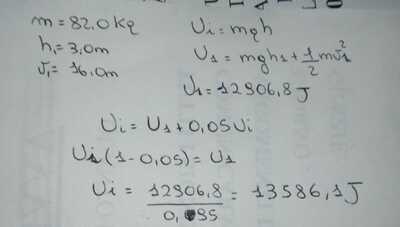 m = 82,0 kg
h₁ = 3,0m
v₁ = 16,0m
Ui = mgh
U₁ = mgh₁ + 1/2 mv₁²
U₁ = 12906,8 J
Ui = U₁ + 0,05Ui
Ui (1 - 0,05) = U₁
Ui = 12906,8 / 0,95 = 13586,1 J